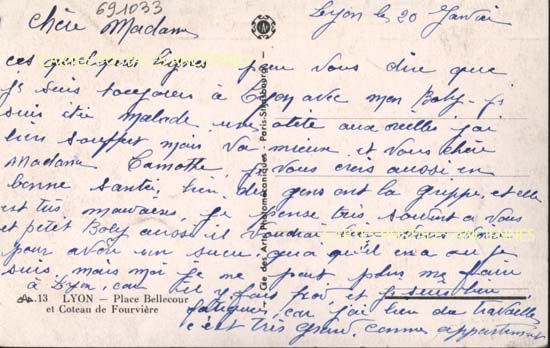 691033
Lyon le 20 Janvier
Chère Madame
ces quelques lignes pour vous dire que
je suis toujours à Lyon avec mon Boby - je
suis été malade une otite aux oreilles j'ai
bien souffert mais va mieux et vous chère
Madame Lamothe, je vous crois aussi en
bonne santé, bien des gens ont la grippe et elle
est très mauvaise, je pense très souvent a vous
et petit Boby aussi il voudrai
pour avoir un sucre, quoi qu'il en a ou je
suis, mais moi je ne peut plus me
à Lyon, car il y fais froid et je suis bien
fatiguée, car j'ai bien du travaille
c'est très grand, comme appartement
A. 13 LYON – Place Bellecour
et Coteau de Fourvière
Cie des Arts Photomécaniques - Paris-Strasbourg